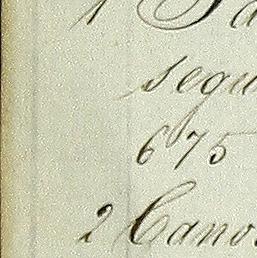 1 Sa
segu
675
2 Canos